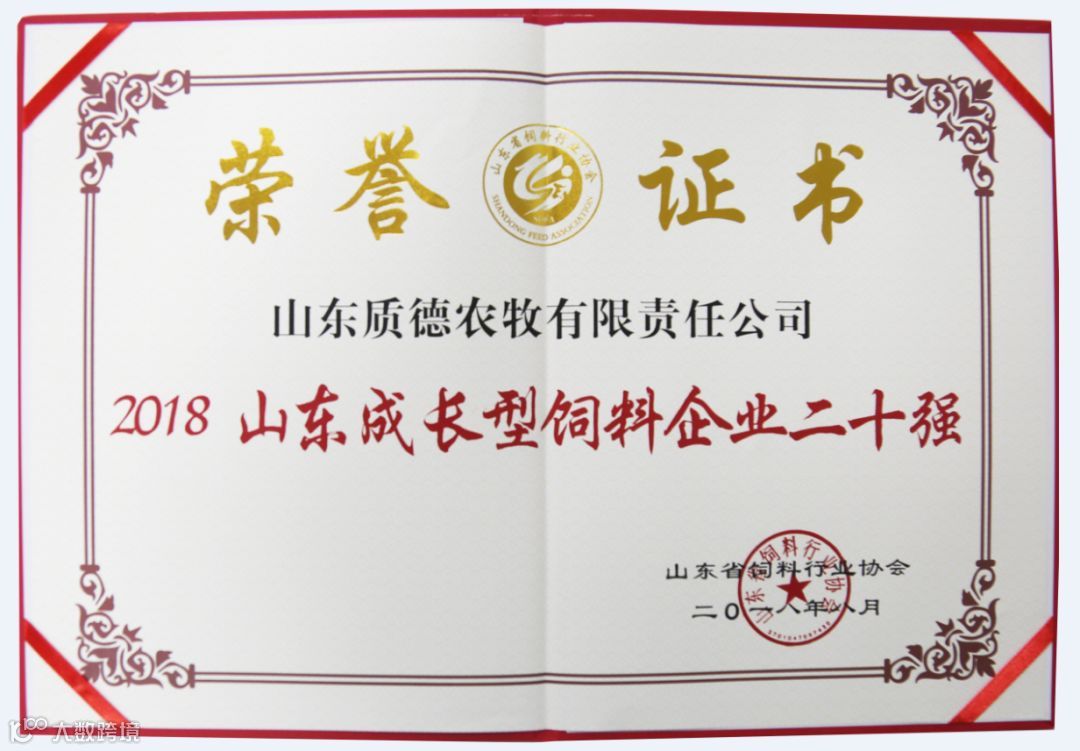 荣誉证书
山东省饲料行业协会
SHANDONG FEED ASSOCIATION
山东质德农牧有限责任公司
2018 山东成长型饲料企业二十强
山东省饲料行业协会
二〇一八年八月
山东省饲料行业协会
大数跨境